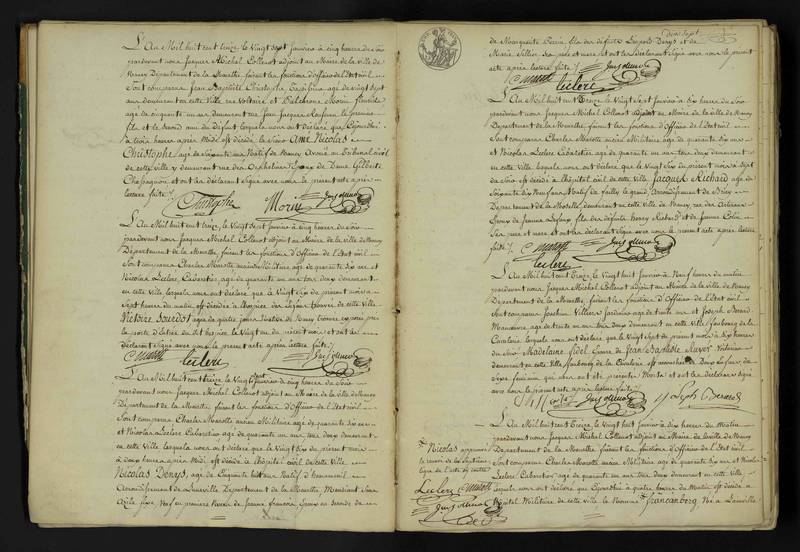 L'An Mil huit cent treize, le Vingt sept Janvier à cinq heures du soir
pardevant nous Jacques Michel Collenot adjoint au Maire de la ville de
Nancy Département de la Meurthe, faisant les fonctions d'officier de l'Etat civil
Sont comparus Jean Baptiste Christophe, âgé de vingt sept
ans demeurant en cette Ville rue Voltaire, et
âgé de cinquante un ans demeurant rue Jean Jacques Rousseau le premier
fils et le second ami du défunt lesquels nous ont déclaré que Cejourdhui
à trois heures après Midi est décédé le Sieur Amé Nicolas
Christophe, âgé de soixante ans Natif de Nancy Avoué au Tribunal civil
de cette ville y demeurant rue des Orphelines Epoux de Dame Gilberte
Chassagnon et ont les déclarants Signé avec nous le présent acte après
lecture faite
Christophe Morin
L'An Mil huit cent treize, le Vingt sept Janvier à cinq heures du soir
pardevant nous Jacques Michel Collenot adjoint au Maire de la ville de Nancy
Département de la Meurthe, faisant les fonctions d'Officier de l'Etat civil
Sont comparus Charles Marotte ancien Militaire âgé de quarante six ans et
Nicolas Leclerc Cabaretier âgé de quarante un ans tous deux demeurant
en cette ville lesquels nous ont déclaré que le Vingt six du présent mois à
Sept heures du matin est décédée à l'hospice des Enfans trouvés de cette Ville
Victoire Sourdot âgée de quatre jours Native de Nancy trouvée exposée près
la porte d'Entrée du dit hospice le Vingt un du présent mois et ont les
déclarants Signé avec nous le présent acte après lecture faite
C Marotte Leclerc
L'An Mil huit cent treize, le Vingt sept Janvier à six heures du soir
pardevant nous Jacques Michel Collenot adjoint au Maire de la ville de Nancy
Département de la Meurthe, faisant les fonctions d'Officier de l'Etat civil
Sont comparus Charles Marotte ancien Militaire âgé de quarante six ans
et Nicolas Leclerc Cabaretier âgé de quarante un ans, tous deux demeurant
en cette ville lesquels nous ont déclaré que le Vingt six du présent mois
à deux heures après Midi est décédé à l'hôpital civil de cette Ville
Nicolas Denys, âgé de Cinquante huit ans Natif
Arrondissement de Lunéville Département de la Meurthe, Mendiant Sans
Azile fixe Veuf en premières Noces de Jeanne François Epoux en seconde
Dix Sept
de Marguerite fils des défunts Léopold Denys et de
Marie ses père et mère et ont les déclarants Signé avec nous le présent
acte après lecture faite
C Marotte Leclerc
L'An Mil huit cent Treize, le Vingt Sept Janvier à six heures du Soir
pardevant nous Jacques Michel Collenot adjoint au Maire de la ville de Nancy
Département de la Meurthe, faisant les fonctions d'Officier de l'Etat civil
Sont comparus Charles Marotte ancien Militaire âgé de quarante six ans
et Nicolas Leclerc Cabaretier âgé de quarante un ans tous deux demeurant
en cette Ville lesquels nous ont déclaré que le Vingt Six du présent mois à Sept
du Soir est décédé à l'hôpital civil de cette ville Jacques Richard âgé de
Soixante dix Neuf ans Natif de Failly le grand, Arrondissement de Briey
Département de la Moselle, demeurant en cette ville de Nancy, rue des
Epoux de Jeanne fils des défunts Henry Richard et de Jeanne Colin
Ses père et mère et ont les déclarants Signé avec nous le présent acte après lecture
faite
C Marotte
Leclerc
L'An Mil huit cent Treize, le Vingt huit Janvier à Neuf heures du matin
pardevant nous Jacques Michel Collenot adjoint au Maire de la ville de Nancy,
Département de la Meurthe, faisant les fonctions d'Officier de l'Etat civil
Sont comparus Joachim Villiers Jardinier âgé de trente ans et Joseph Bernard
Manœuvre, âgé de trente un ans tous deux demeurant en cette ville faubourg de la
Constitution lesquels nous ont déclaré que le Vingt Sept du présent mois à Six heures
du Soir Madelaine Fidel Epouse de Jean Baptiste Mayer
demeurant en cette Ville faubourg de la Constitution est accouchée de
sexe féminin qui nous ont été présentés Morts et ont les déclarants signé
avec nous le présent acte après lecture faite
Joseph Bernard
L'An Mil huit cent Treize, le Vingt huit Janvier à dix heures du Matin
pardevant nous Jacques Michel Collenot adjoint au Maire de la ville de Nancy
Département de la Meurthe, faisant les fonctions d'Officier de l'Etat civil
Sont comparus Charles Marotte ancien Militaire âgé de quarante six ans et Nicolas
Leclerc Cabaretier âgé de quarante un ans Tous deux demeurant en cette Ville
lesquels nous ont déclaré que Cejourdhui à quatre heures du Matin est décédé à
l'hôpital Militaire de cette ville le Nommé Francanberg, Né à
Nicolas approuvé
le renvoi de la septième
ligne de l'acte ci contre
Leclerc C Marotte